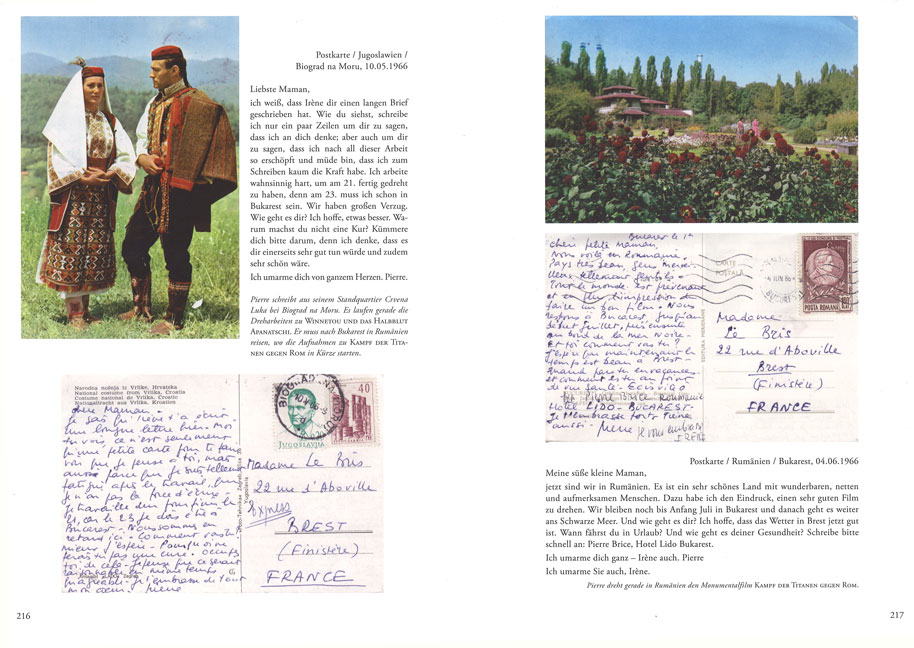 Postkarte / Jugoslawien /
Biograd na Moru, 10.05.1966
Liebste Maman,
ich weiß, dass Irène dir einen langen Brief
geschrieben hat. Wie du siehst, schreibe
ich nur ein paar Zeilen um dir zu sagen,
dass ich an dich denke; aber auch um dir
zu sagen, dass ich nach all dieser Arbeit
so erschöpft und müde bin, dass ich zum
Schreiben kaum die Kraft habe. Ich arbeite
wahnsinnig hart, um am 21. fertig gedreht
zu haben, denn am 23. muss ich schon in
Bukarest sein. Wir haben großen Verzug.
Wie geht es dir? Ich hoffe, etwas besser. Wa-
rum machst du nicht eine Kur? Kümmere
dich bitte darum, denn ich denke, dass es
dir einerseits sehr gut tun würde und zudem
sehr schön wäre.
Ich umarme dich von ganzem Herzen. Pierre.
Pierre schreibt aus seinem Standquartier Crvena
Luka bei Biograd na Moru. Es laufen gerade die
Dreharbeiten zu WINNETOU UND DAS HALBBLUT
APANATSCHI. Er muss nach Bukarest in Rumänien
reisen, wo die Aufnahmen zu KAMPF DER TITA-
NEN GEGEN ROM in Kürze starten.
Narodna nošnja iz Vrlike, Hrvatska
National costume from Vrlika, Croatia
Costume national de Vrlika, Croatie
Nationaltracht aus Vrlika, Kroatien
chère Maman -
Je sais qu'Irène t'a écrit
une longue lettre
tu vois ce n'est seulement
qu'une petite carte pour te faire
voir que je pense à toi, mais
aussi parce que je suis tellement
fatigué après le travail, que
je n'ai pas la force d'écrire -
Je travaille
21, car le 23 je dois être à
Bucarest - Nous sommes en
retard ici - Comment vas-tu?
mieux j'espère - Pourquoi ne
feras tu pas une cure - occupe
toi de cela - Je pense que ce serait
en même temps
agréable - Je t'embrasse de tout
mon cœur - Pierre
40
JUGOSLAVIJA
Madame Le Bris
22 rue d'Aboville
Express
BREST
(Finistère)
FRANCE
216
Bucarest le
Chère petite Maman,
Nous voilà en Roumanie,
Pays très beau, gens merveil-
leux tellement gentils -
Tout le monde est prévenant
et en plus l'impression de
faire un bon film - Nous
restons à Bucarest, jusqu'au
début Juillet, puis ensuite
au bord de la mer Noire -
Et toi comment vas tu?
J'espère que maintenant le
temps est beau à Brest -
Quand pars tu en vacances -
et comment es tu au point
de vue santé - Ecris vite
Pierre Brice Roumanie
Hotel LIDO - BUCAREST -
Je t'embrasse fort Irène
aussi - Pierre je vous embrasse
IRENE
CARTE
POSTALA
POSTA ROMANA
Madame
Le Bris
22 rue d'Aboville
Brest
(Finistère)
FRANCE
Postkarte / Rumänien / Bukarest, 04.06.1966
Meine süße kleine Maman,
jetzt sind wir in Rumänien. Es ist ein sehr schönes Land mit wunderbaren, netten
und aufmerksamen Menschen. Dazu habe ich den Eindruck, einen sehr guten Film
zu drehen. Wir bleiben noch bis Anfang Juli in Bukarest und danach geht es weiter
ans Schwarze Meer. Und wie geht es dir? Ich hoffe, dass das Wetter in Brest jetzt gut
ist. Wann fährst du in Urlaub? Und wie geht es deiner Gesundheit? Schreibe bitte
schnell an: Pierre Brice, Hotel Lido Bukarest.
Ich umarme dich ganz – Irène auch. Pierre
Ich umarme Sie auch, Irène.
Pierre dreht gerade in Rumänien den Monumentalfilm KAMPF DER TITANEN GEGEN ROM.
217